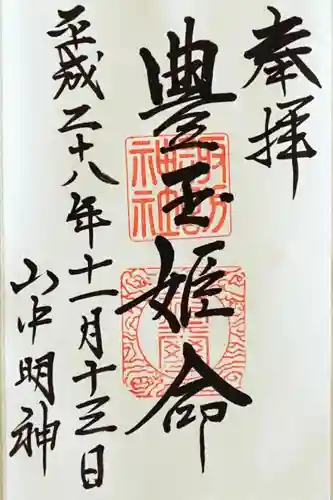 奉拝
豊玉姫命
諏訪神社
平成二十八年十一月十三日
山中明神